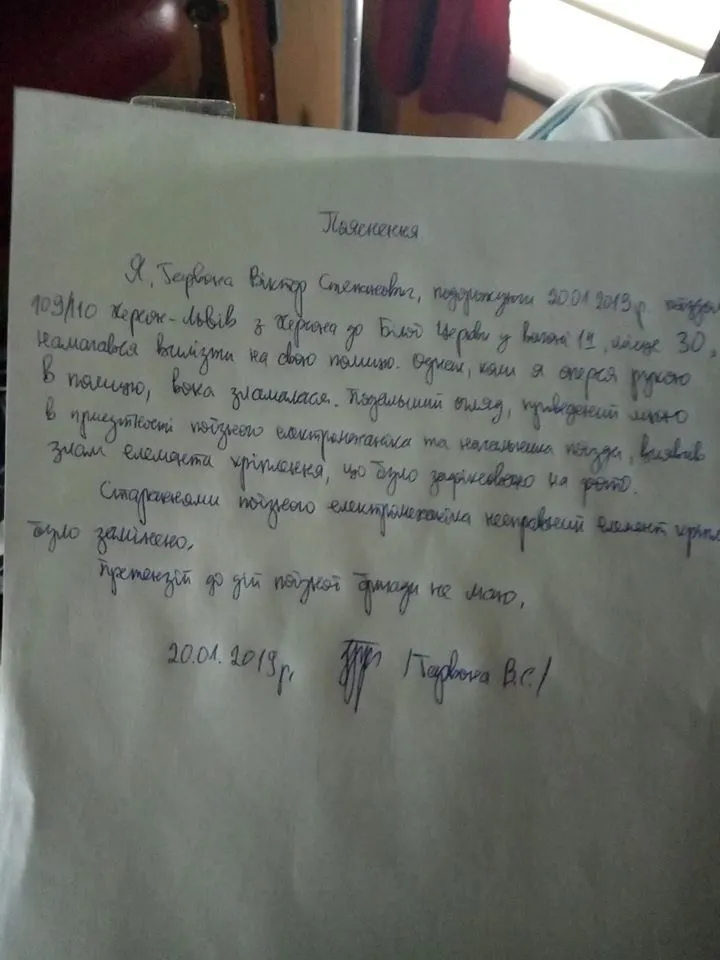 Пояснення
Я, Гарвона Віктор Степанович, подорожуючи 20.01.2019 р. поїздом
109/110 Херсон-Львів з Херсона до Білої Церкви у вагоні 19, місце 30,
намагався вилізти на свою полицю. Однак, коли я оперся рукою
в полицю, вона зламалася. Подальший огляд, проведений мною
в присутності поїзного електромеханіка та начальника поїзда, виявив
злам елемента кріплення, що було зафіксовано на фото.
Стараннями поїзного електромеханіка несправний елемент
було замінено.
Претензій до дій поїзної бригади не маю.
20.01.2019 р. /Гарвона В.С./